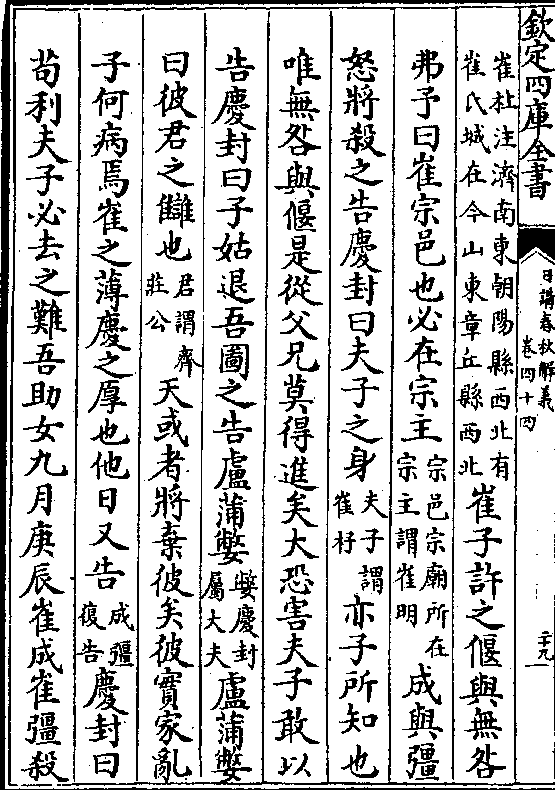 欽定四庫全書
日講春秋解義
卷四十四
二十九
崔杜注濟南東朝陽縣西北有
崔氏城在今山東章丘縣西北
崔子許之偃與無咎
弗予曰崔宗邑也必在宗主
宗邑宗廟所在
宗主謂崔明
成與彊
怒將殺之告慶封曰夫子之身
夫子謂
崔杼
亦子所知也
唯無咎與偃是從父兄莫得進矣大恐害夫子敢以
告慶封曰子姑退吾圖之告盧蒲嫳
嫳慶封
屬大夫
盧蒲嫳
曰彼君之讎也
君謂齊
莊公
天或者將棄彼矣彼實家亂
子何病焉崔之薄慶之厚也他日又告
成彊
復告
慶封曰
苟利夫子必去之難吾助女九月庚辰崔成崔彊殺